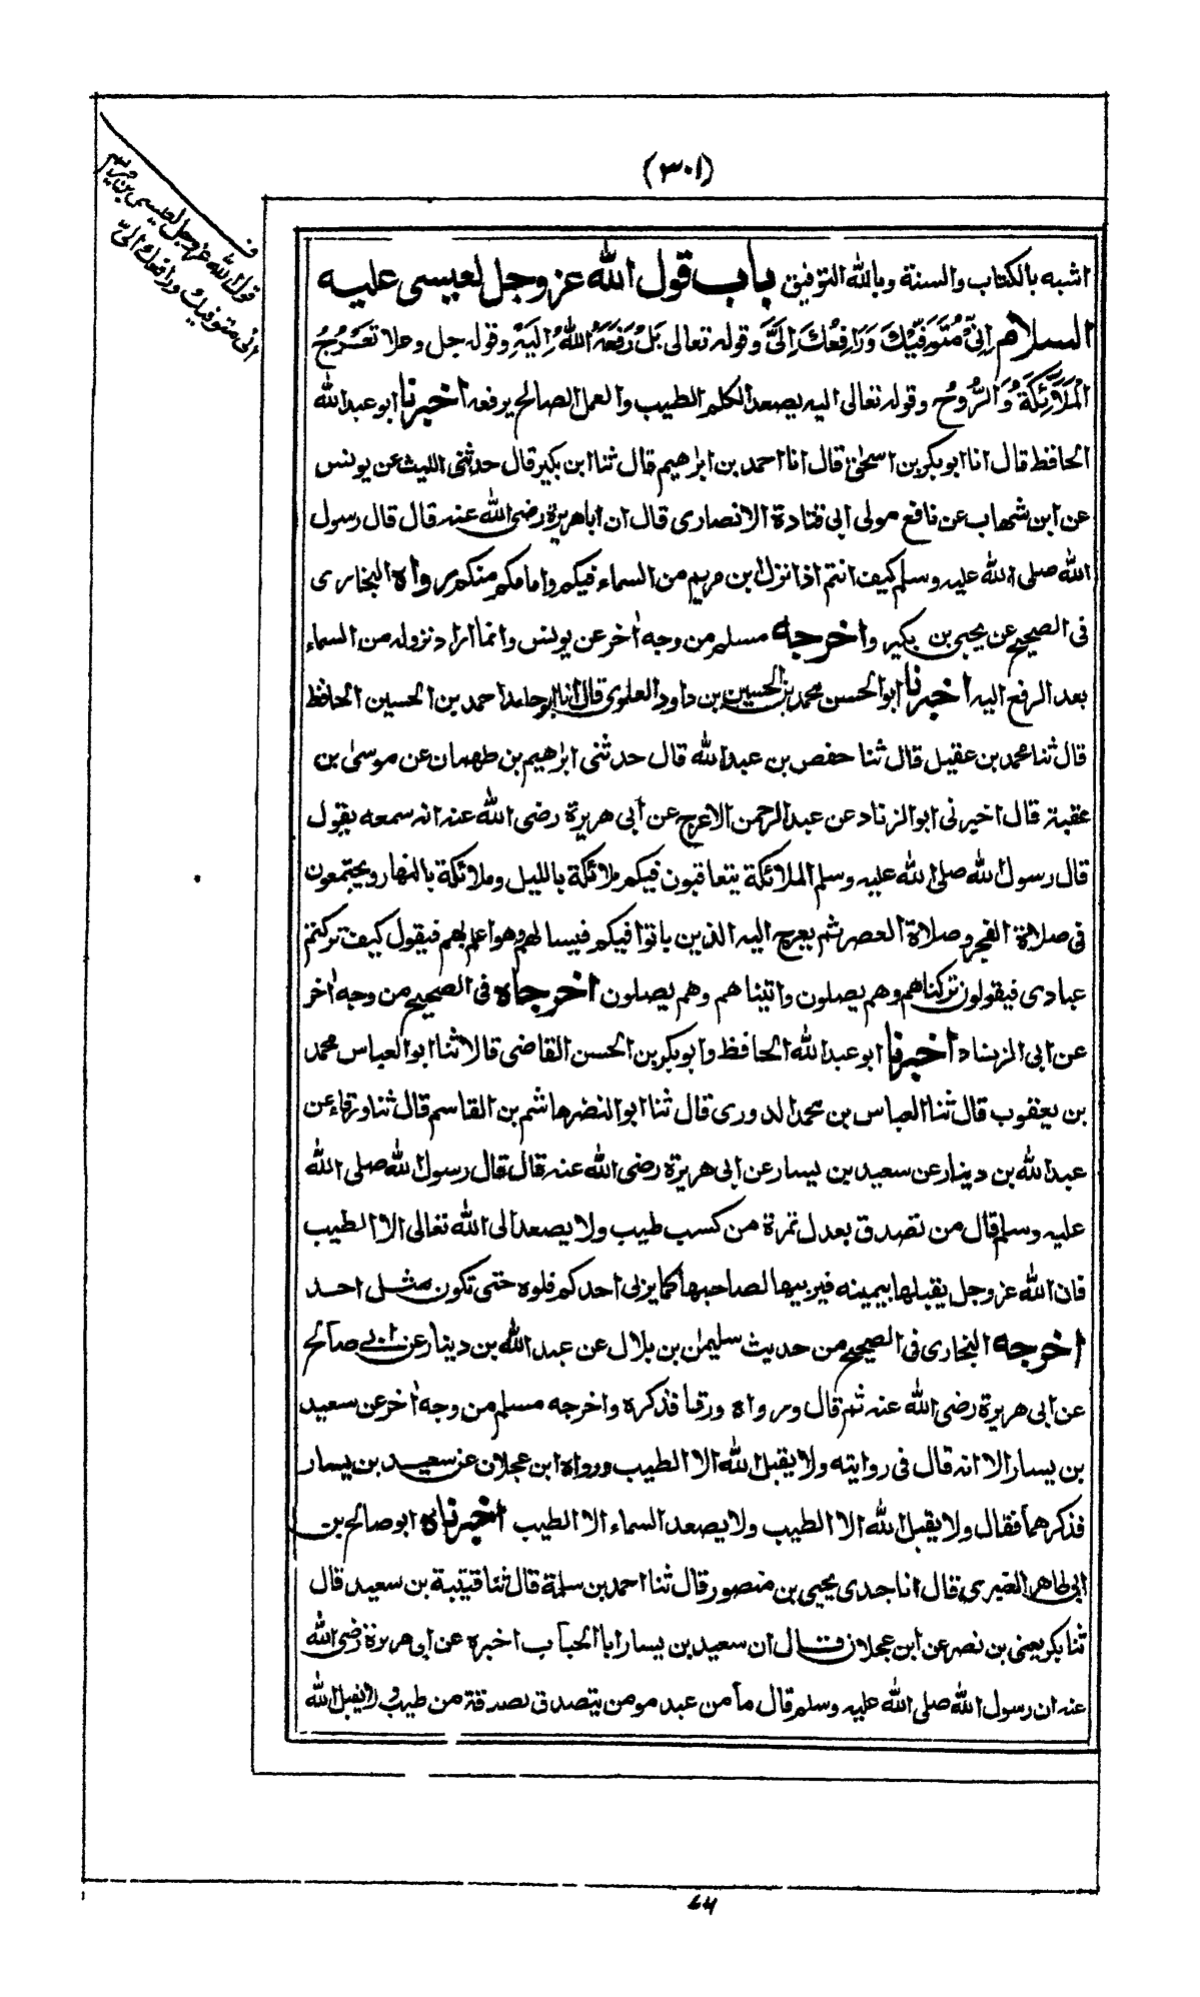 (٣٠١)
ف
قول الله عز وجل لعيسى بن مريم
انى متوفيك ورافعك الىّ
اشبه بالكتاب والسنة وبالله التوفيق باب قول الله عز وجل لعيسى عليه
السلام اِنِّىْ مُتَوَفِّيْكَ وَرَافِعُكَ اِلَىَّ وقوله تعالى بَلْ رَفَعَهُ اللهُ اِلَيْهِ وقوله جل وعلا تَعْرُجُ
الْمَلَآئِكَةُ وَالرُّوْحُ وقوله تعالى اليه يصعد الكلم الطيب والعمل الصالح يرفعه اخبرنا ابو عبد الله
الحافظ قال انا ابو بكر بن اسحٰق قال انا احمد بن ابرٰهيم قال ثنا ابن بكير قال حدثنى الليث عن يونس
عن ابن شهاب عن نافع مولى ابى قتادة الانصارى قال ان ابا هريرة رضى الله عنه قال قال رسول
الله صلى الله عليه وسلم كيف انتم اذا نزل ابن مريم من السماء فيكم وامامكم منكم رواه البخارى
فى الصحيح عن يحيى بن بكير واخرجه مسلم من وجه اٰخر عن يونس وانما اراد نزوله من السماء
بعد الرفع اليه اخبرنا ابو الحسن محمد بن الحسين بن داود العلوى قال انا ابو حامد احمد بن الحسين الحافظ
قال ثنا محمد بن عقيل قال ثنا حفص بن عبد الله قال حدثنى ابرٰهيم بن طهمان عن موسىٰ بن
عقبة قال اخبرنى ابو الزناد عن عبد الرحمن الاعرج عن ابى هريرة رضى الله عنه انه سمعه يقول
قال رسول الله صلى الله عليه وسلم الملائكة يتعاقبون فيكم ملائكة بالليل وملائكة بالنهار ويجتمعون
فى صلاة الفجر وصلاة العصر ثم يعرج اليه الذين باتوا فيكم فيسالهم وهو اعلم بهم فيقول كيف تركتم
عبادى فيقولون تركناهم وهم يصلون واتيناهم وهم يصلون اخرجاه فى الصحيح من وجه اٰخر
عن ابى الزناد اخبرنا ابو عبد الله الحافظ وابو بكر بن الحسن القاضى قالا ثنا ابو العباس محمد
بن يعقوب قال ثنا العباس بن محمد الدورى قال ثنا ابو النضر هاشم بن القاسم قال ثنا ورقاء عن
عبد الله بن دينار عن سعيد بن يسار عن ابى هريرة رضى الله عنه قال قال رسول الله صلى الله
عليه وسلم قال من تصدق بعدل تمرة من كسب طيب ولا يصعد الى الله تعالى الا الطيب
فان الله عز وجل يقبلها بيمينه فيربيها لصاحبها كما يربى احدكم فلوه حتى تكون مثل احد
اخرجه البخارى فى الصحيح من حديث سليمٰن بن بلال عن عبد الله بن دينار عن ابى صالح
عن ابى هريرة رضى الله عنه ثم قال ورواه ورقا فذكره واخرجه مسلم من وجه اٰخر عن سعيد
بن يسار الا انه قال فى روايته ولا يقبل الله الا الطيب ورواه ابن عجلان عن سعيد بن يسار
فذكرهما فقال ولا يقبل الله الا الطيب ولا يصعد السماء الا الطيب اخبرناه ابو صالح بن
ابى طاهر العنبرى قال انا جدى يحيى بن منصور قال ثنا احمد بن سلمة قال ثنا قتيبة بن سعيد قال
ثنا بكر يعنى بن نصر عن ابن عجلان قال ان سعيد بن يسار ابا الحباب اخبره عن ابى هريرة رضى الله
عنه ان رسول الله صلى الله عليه وسلم قال ما من عبد مومن يتصدق بصدقة من طيب ولا يقبل الله